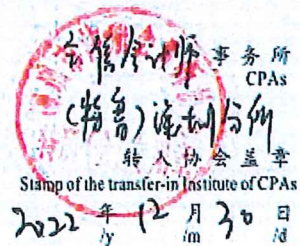 立信会计师事务所
CPAs
(特普)深圳分所
转入协会盖章
Stamp of the transfer-in Institute of CPAs
2022年12月30日
/y /m /d